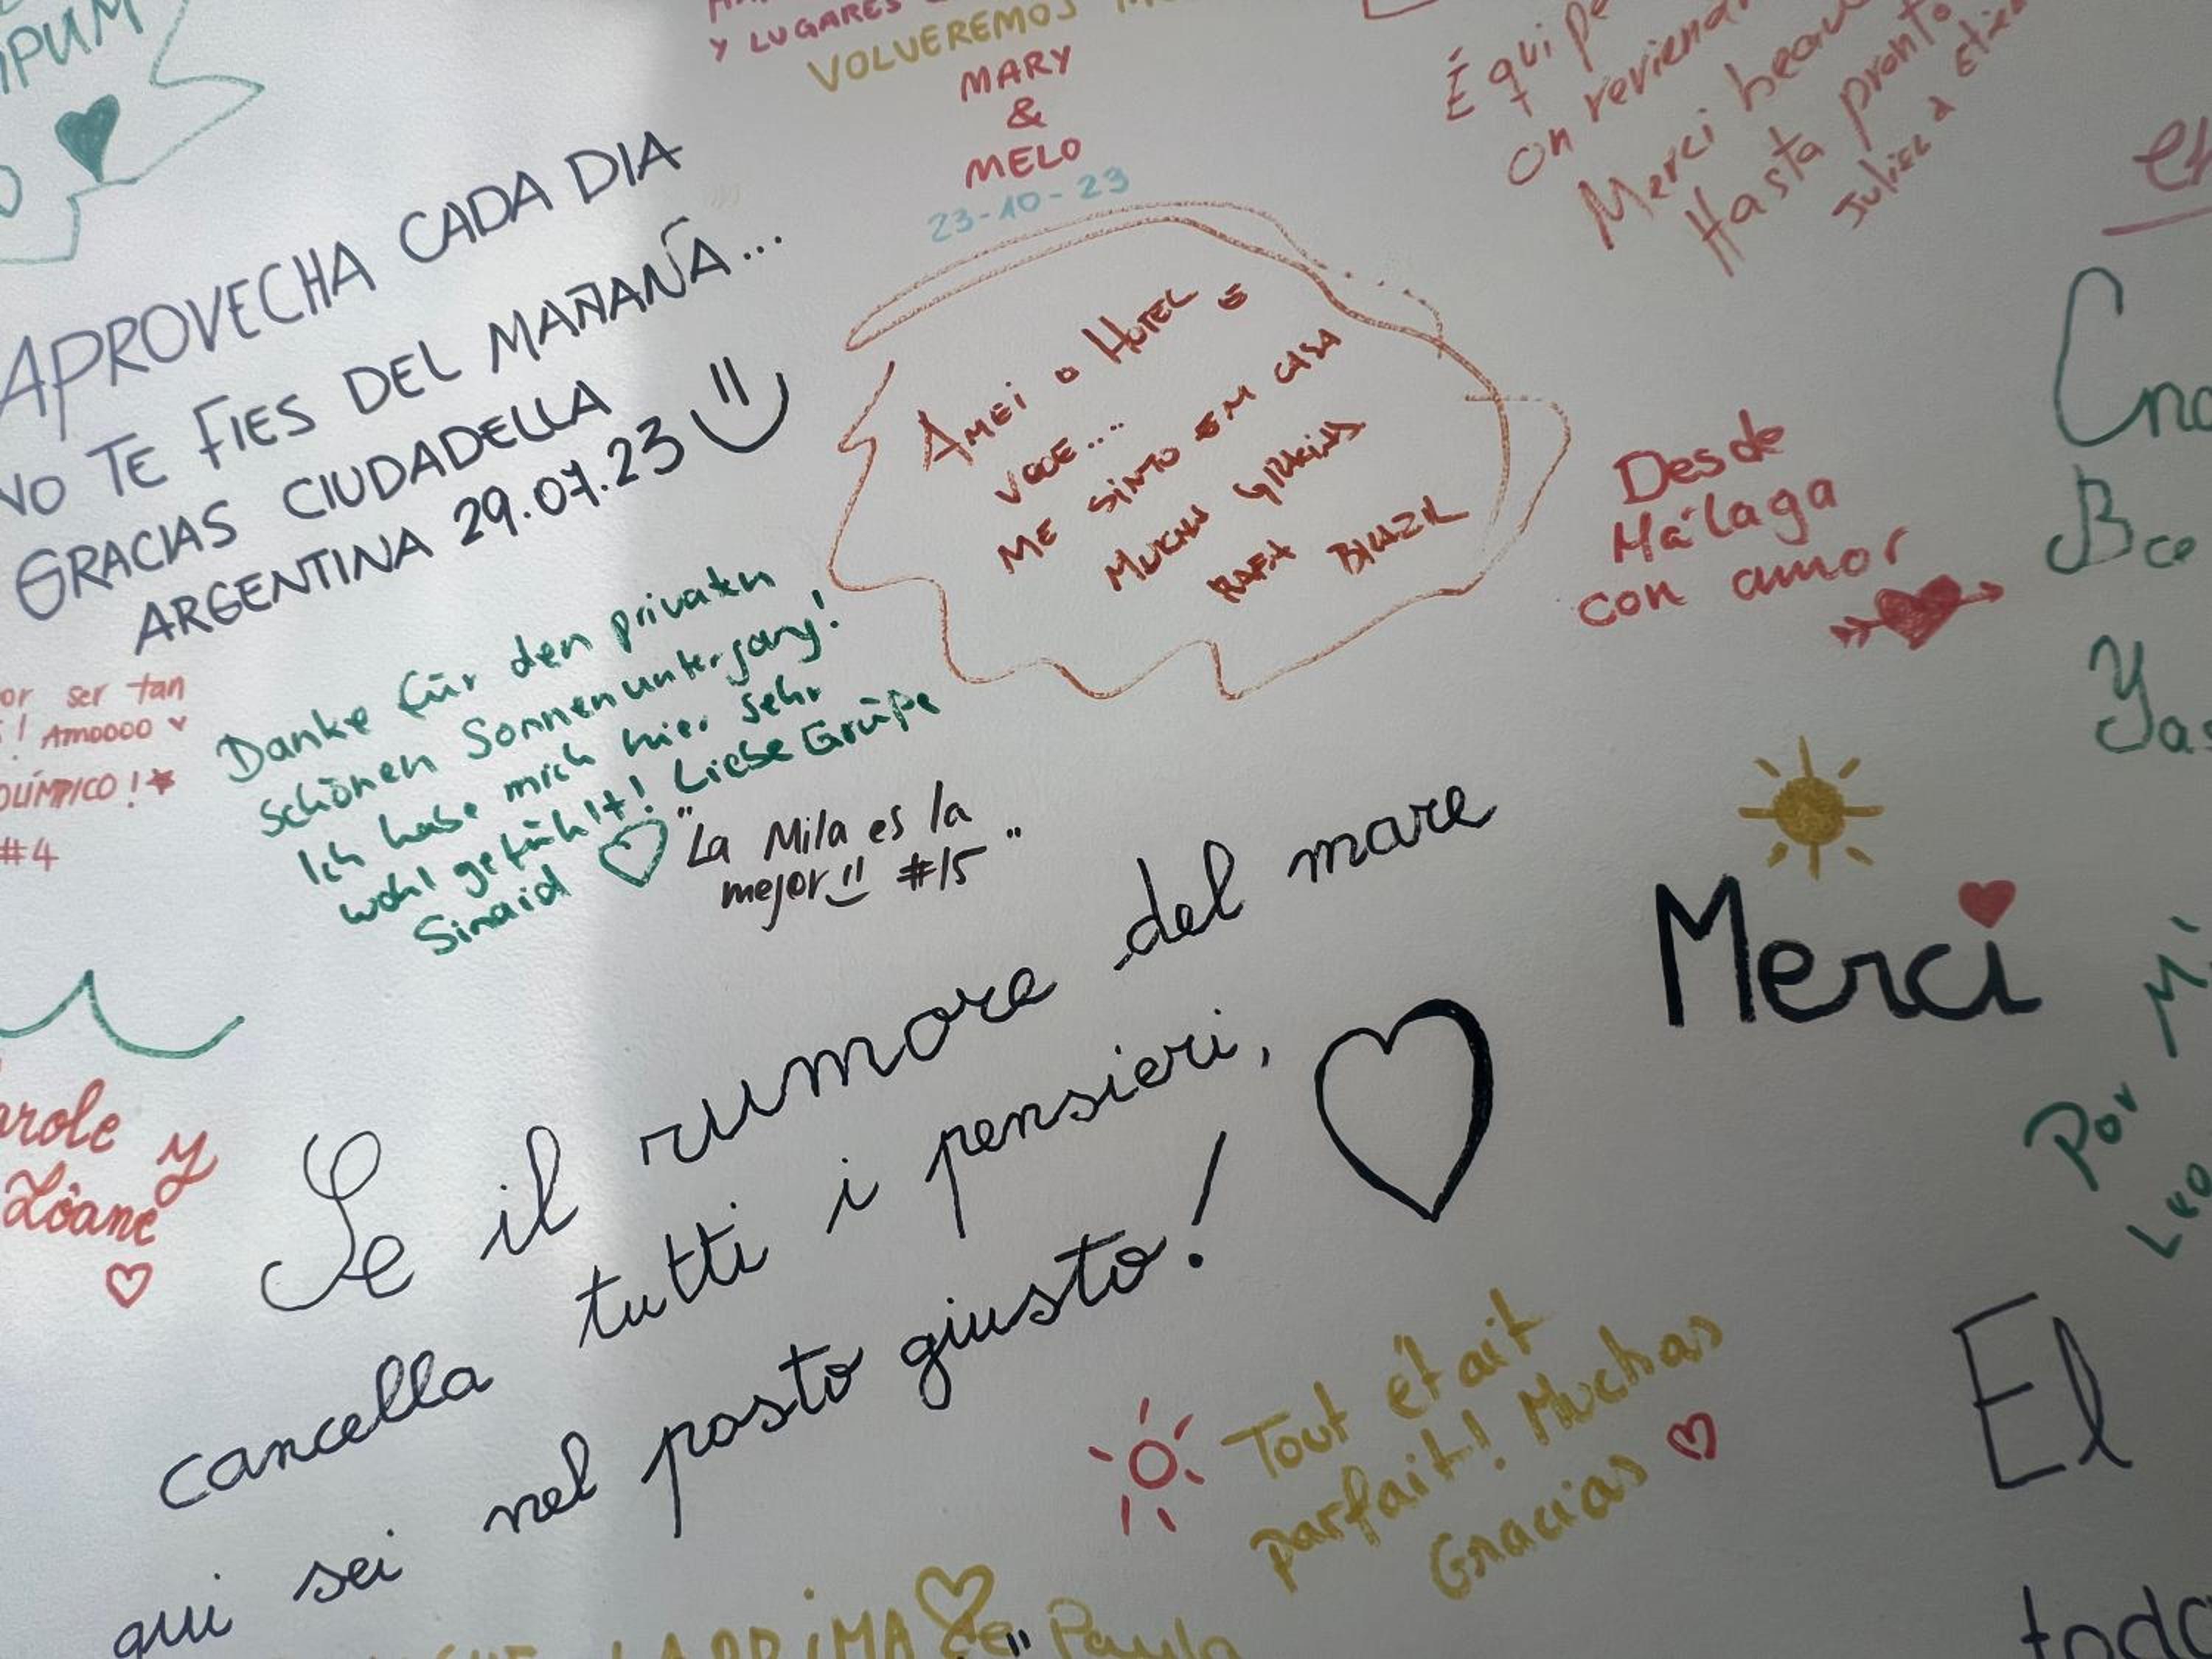 Y LUGARES
VOLVEREMOS
MARY
&
MELO
23-10-23
Équipe
On reviendra
Merci beau
Hasta pronto
APROVECHA CADA DIA
NO TE FIES DEL MAÑANA...
GRACIAS CIUDADELLA
ARGENTINA 29.07.23
AMEI O HOTEL E
VOCE....
ME SINTO EM CASA
MUCHAS GRACIAS
RAFA BRAZIL
Desde
Málaga
con amor
or ser tan
! AMOOOO
OLÍMPICO!
#4
Danke für den privaten
schönen Sonnenuntergang!
Ich habe mich hier sehr
wohl gefühlt! Liebe Grüße
Sinaid
"La Mila es la
mejor #15"
Merci
arole y
Zöane
Se il rumore del mare
cancella tutti i pensieri,
qui sei nel posto giusto!
Tout était
parfait! Muchas
Gracias
Por
El
Paula